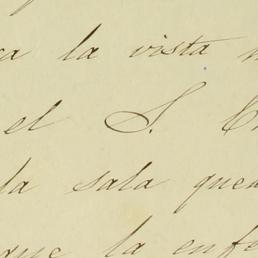 la vista
el S.
la sala que
que la enfe